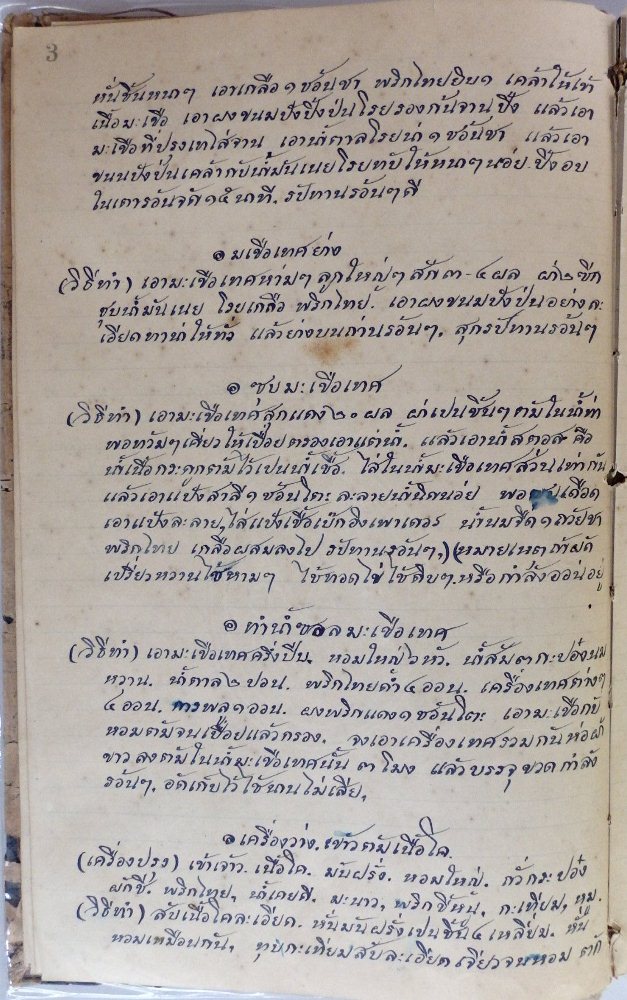 3
หั่นชิ้นหนาๆ เอาเกลือ ๑ ช้อนชา พริกไทยยิบ ๑ เคล้าให้เข้า
เนื้อมะเขือ เอาผงขนมปังปิ้งป่นโรยรองก้นจานปิ้ง แล้วเอา
มะเขือที่ปรุงเทใส่จาน เอาน้ำตาลโรยน่า ๑ ช้อนชา แล้วเอา
ขนมปังป่นเคล้ากับน้ำมันเนยโรยทับให้หนาๆ น่อย. ปิ้งอบ
ในเตารอ้นจัด ๑๕ นาที. รปัทานรอ้นๆ ดี
๏ มเขือเทศย่าง
(วิธีทำ) เอามะเขือเทศห่ามๆ ลูกใหญ่ๆ สัก ๓-๔ ผล ผ่า ๒ ซีก
ชุบน้ำมันเนย โรยเกลือ พริกไทย. เอาผงขนมปังป่นอย่างละ
เอียดทาน่าให้ทั่ว แล้วย่างบนถ่านรอ้นๆ. สุกรปัทานรอ้นๆ
๏ ซุบมะเขือเทศ
(วิธีทำ) เอามะเขือเทศสุกแดง ๒๐ ผล ผ่าเปนชิ้นๆ ต้มในน้ำท่า
พอท่วมๆ เคี่ยวให้เปื่อยตรองเอาแต่น้ำ. แล้วเอาน้ำสตอส คือ
น้ำเนื้อกระดูกต้มไว้เปนน้ำเชื้อ. ใส่ในน้ำมะเขือเทศส่วนเท่ากัน
แล้วเอาแป้งสาลี ๑ ช้อนโตะ ละลายน้ำนิดน่อย พอ เดือด
เอาแป้งละลาย, ใส่แป้งเชื้อเบ๊กอิงเพาเดอร น้ำนมจืด ๑ ถ้วยชา
พริกไทย เกลือผสมลงไป รปัทานรอ้นๆ,) (หมายเหตุ ถ้าผัด
เปรี้ยวหวานใช้ห่ามๆ ใช้ทอดไข่ใช้ดิบๆ. หรือกำลังออ่นอยู่
๏ ทำน้ำซอลมะเขือเทศ
(วิธีทำ) เอามะเขือเทศครึ่งปีบ. หอมใหญ่ ๖ หัว. น้ำส้ม ๓ กะป๋องนม
หวาน. น้ำตาล ๒ ปอน. พริกไทยดำ ๔ ออน. เครื่องเทศต่างๆ
๔ ออน. การพลู ๑ ออน. ผงพริกแดง ๑ ช้อนโตะ เอามะเขือกับ
หอมต้มจนเปื่อยแล้วกรอง. จงเอาเครื่องเทศรวมกันห่อผ้า
ขาวลงต้มในน้ำมะเขือเทศนั้น ๓ โมง แล้วบรรจุขวดกำลัง
รอ้นๆ. อัดเก็บไว้ใช้นานไม่เสีย.
๏ เครื่องว่าง. เข้าต้มเนื้อโค.
(เครื่องปรุง) เข้าเจ้า. เนื้อโค. มันฝรั่ง. หอมใหญ่. ถั่วกระป๋อง
ผักชี. พริกไทย, น้ำเคยดี. มะนาว, พริกชี้หนู, กะเทียม, หมู.
(วิธีทำ) สับเนื้อโคละเอียด. หั่นมันฝรั่งเปนชิ้น ๔ เหลี่ยม. หั่น
หอมเหมือนกัน, ทุบกะเทียมสับละเอียด เจียวจนหอม ตัก